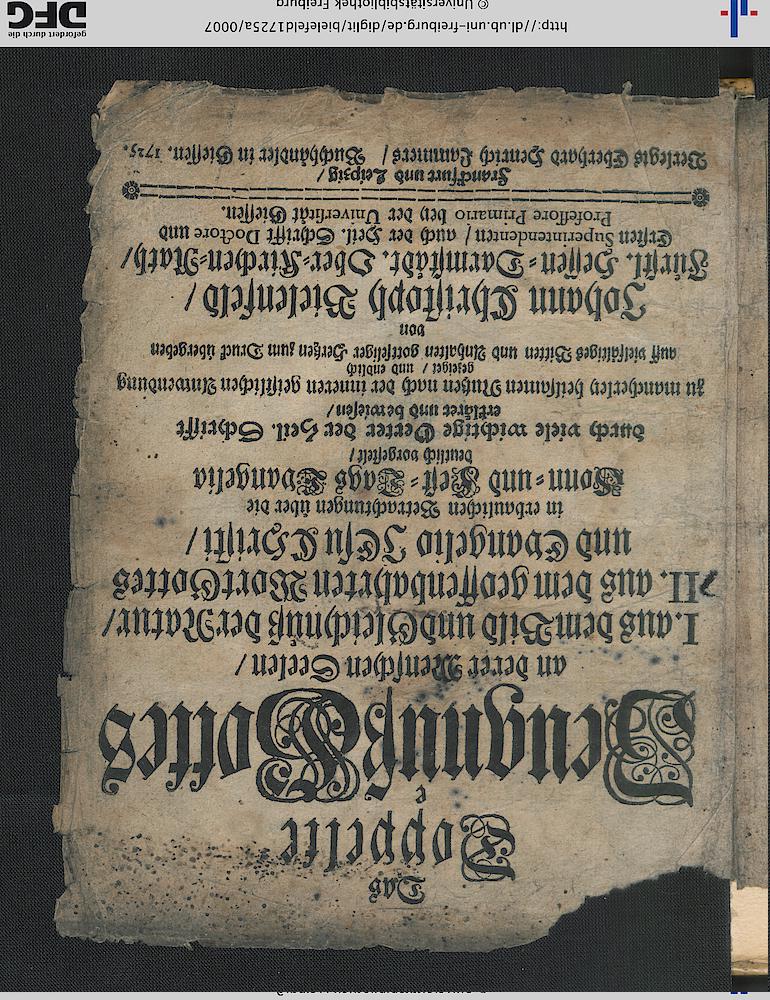 Das
Doppelte
Zeugnuß Gottes
an derer Menschen Seelen /
I. aus dem Bild und Gleichnüß der Natur /
II. aus dem geoffenbahrten Wort Gottes
und Evangelio JEsu CHristi /
in erbaulichen Betrachtungen über die
Sonn- und Fest-Tags Evangelia
deutlich vorgestellt /
durch viele wichtige Oerter der Heil. Schrifft
erkläret und bewiesen /
zu mancherley heilsamen Nutzen nach der inneren geistlichen Anwendung
gezeiget / und endlich
auff vielfältiges Bitten und Anhalten gottseliger Hertzen zum Druck übergeben
von
Johann Christoph Bielenfeld /
Fürstl. Hessen-Darmstädt. Ober-Kirchen-Rath /
Ersten Superintendenten / auch der Heil. Schrifft Doctore und
Professore Primario bey der Universität Giessen.
Franckfurt und Leipzig /
Verlegts Eberhard Henrich Lammers / Buchhändler in Giessen. 1725.
http://dl.ub.uni-freiburg.de/diglit/bielefeld1725a/0007
© Universitätsbibliothek Freiburg
gefördert durch die
DFG